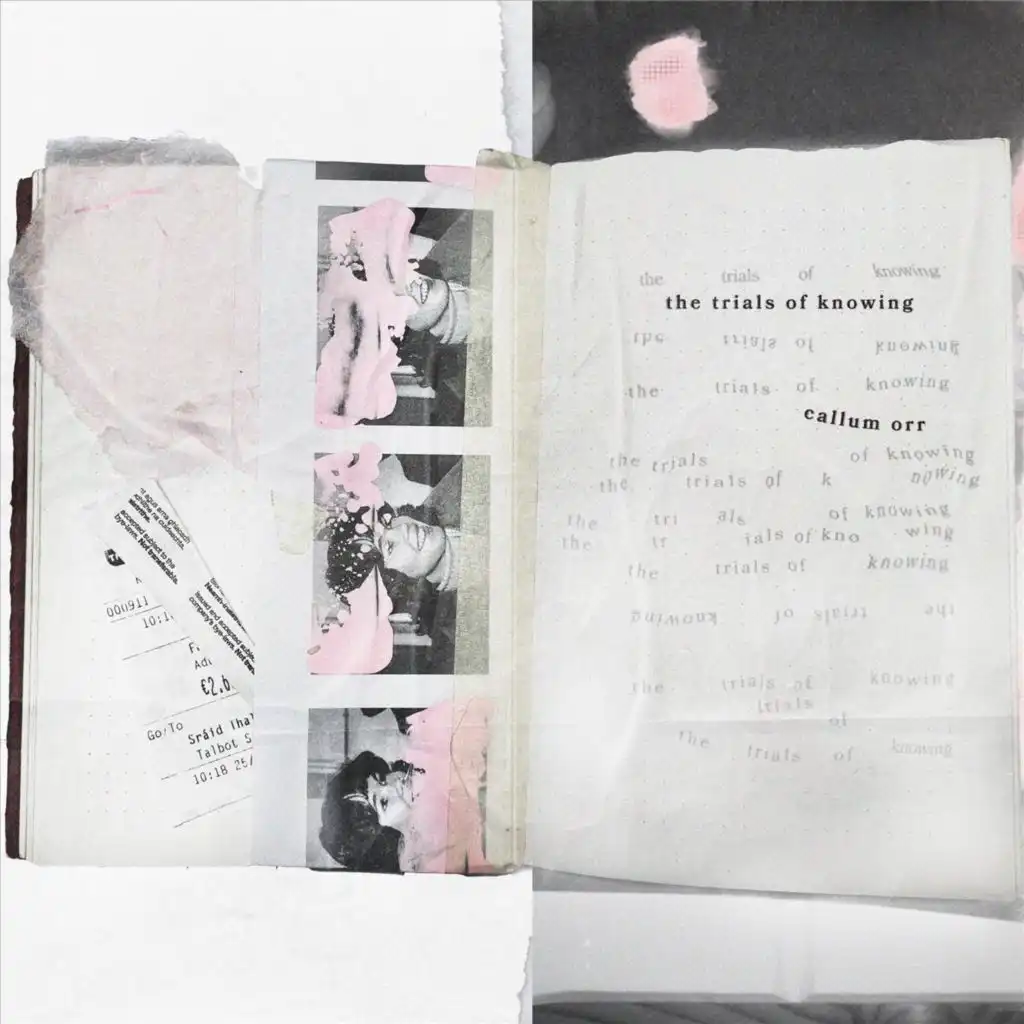 accepted subject to the
bye-laws. Not transferable.
Issued and accepted subje
company's bye-laws. Not tran
000911
10:1
€2.6
Go/To Sráid Tha
Talbot S
10:18 25/
the trials of knowing
the trials of knowing
the trials of knowing
the trials of knowing
callum orr
the trials of knowing
the trials of k nowing
the tri als of knowing
the tr ials of kno wing
the trials of knowing
the trials of knowing
the trials of knowing
trials
of
the trials of knowing